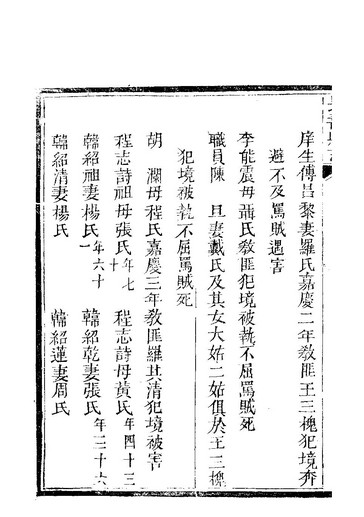 庠生傅昌黎妻羅氏嘉慶二年敎匪王三槐犯境奔
避不及罵賊遇害
李能震母蕭氏敎匪犯境被執不屈罵賊死
職員陳　旦妻戴氏及其女大姑二姑俱於王三槐
犯境被執不屈罵賊死
胡　瀾母程氏嘉慶三年敎匪羅其清犯境被害
程志詩祖母張氏年七十　程志詩母黃氏年四十三
韓紹祖妻楊氏年六十一　韓紹乾妻張氏年三十六
韓紹清妻楊氏　韓紹蓮妻周氏